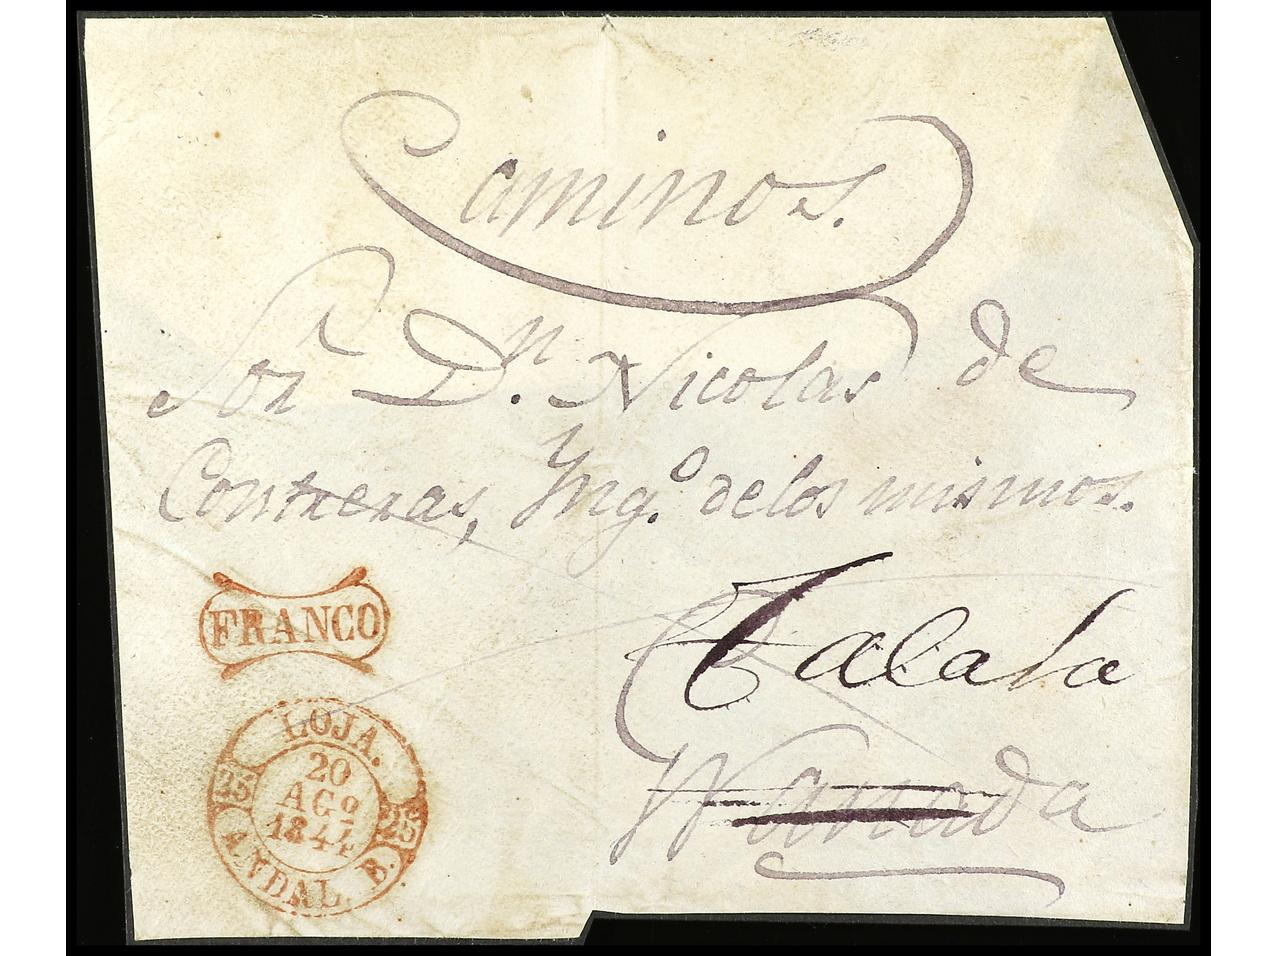 Caminos.
Sor Dn. Nicolas de
Contreras, Yngo. de los mismos.
FRANCO
LOJA.
20
AGO
1844
25 25
ANDAL. B.